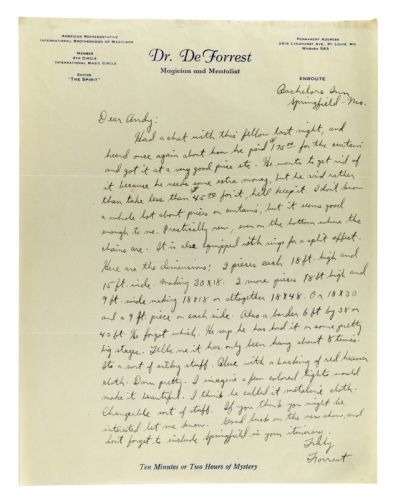 AMERICAN REPRESENTATIVE
INTERNATIONAL BROTHERHOOD OF MAGICIANS
MEMBER
4TH CIRCLE
INTERNATIONAL MAGIC CIRCLE
EDITOR
"THE SPIRIT"
Dr. De Forrest
Magician and Mentalist
PERMANENT ADDRESS
2814 LYNDHURST AVE, ST. LOUIS MO
WABASH 583
ENROUTE
Bachelors Inn,
Springfield - Mo.
Dear Andy:
Had a chat with this fellow last night, and
heard once again about how he paid $175.00 for the curtain
and got it at a very good price etc. He wants to get rid of
it because he needs some extra money, but he said rather
than take less than $45.00 for it, he'd keep it. I don't know
a whole lot about prices on curtains, but it seems good
enough to me. Practically new, even on the bottom where the
chains are. It is also equipped with rings for a split effect.
Here are the dimensions: 2 pieces each 18 ft. high and
15 ft. wide. Making 30X18. 2 more pieces 18 ft high and
9 ft. wide making 18X18 or altogether 18X48. Or 18X30
and a 9 ft. piece on each side. Also a border 6 ft by 38 or
40 ft. He forgot which. He says he has had it on some pretty
big stages. Tells me it has only been hung about 8 times.
Its a sort of silky stuff. Blue with a backing of red heavier
cloth. Darn pretty. I imagine a few colored lights would
make it beautiful. I think he called it metaline cloth.
Changeable sort of stuff. If you think you might be
interested let me know. Good luck on the new show, and
dont forget to include Springfield in your itinerary.
Forrest
Ten Minutes or Two Hours of Mystery